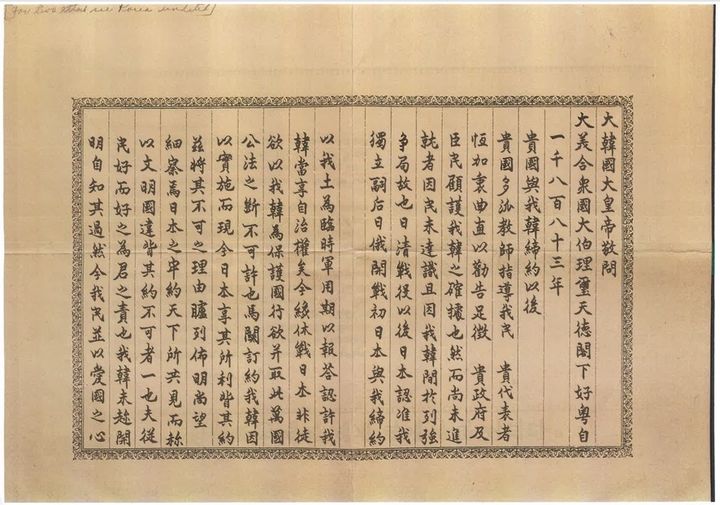 [For two others see Korea undated]
大韓國大皇帝敬問
大美合衆國大伯理璽天德閣下好粤自
一千八百八十三年
貴國與我韓締約以後
貴國多派教師指導我民 貴代表者
恒加衷曲直以勸告足徵 貴政府及
臣民顧護我韓之確據也然而尚未進
就者因民未達識且因我韓間於列強
争局故也日清戰役以後日本認准我
獨立嗣后日俄開戰初日本與我締約
以我土為臨時軍用期以報答認許我
韓當享自治權矣今緣休戰日本非徒
欲以我韓為保護國行欲并取此萬國
公法之斷不可許也馬關訂約我韓因
以實施而現今日本享其所利背其約
茲將其不可之理由臚列佈明尚望
細察焉日本之牢約天下所共見而称
以文明國違背其約不可者一也夫從
民好而好之為君之責也我韓未趍開
明自知其過然今我民並以愛國之心